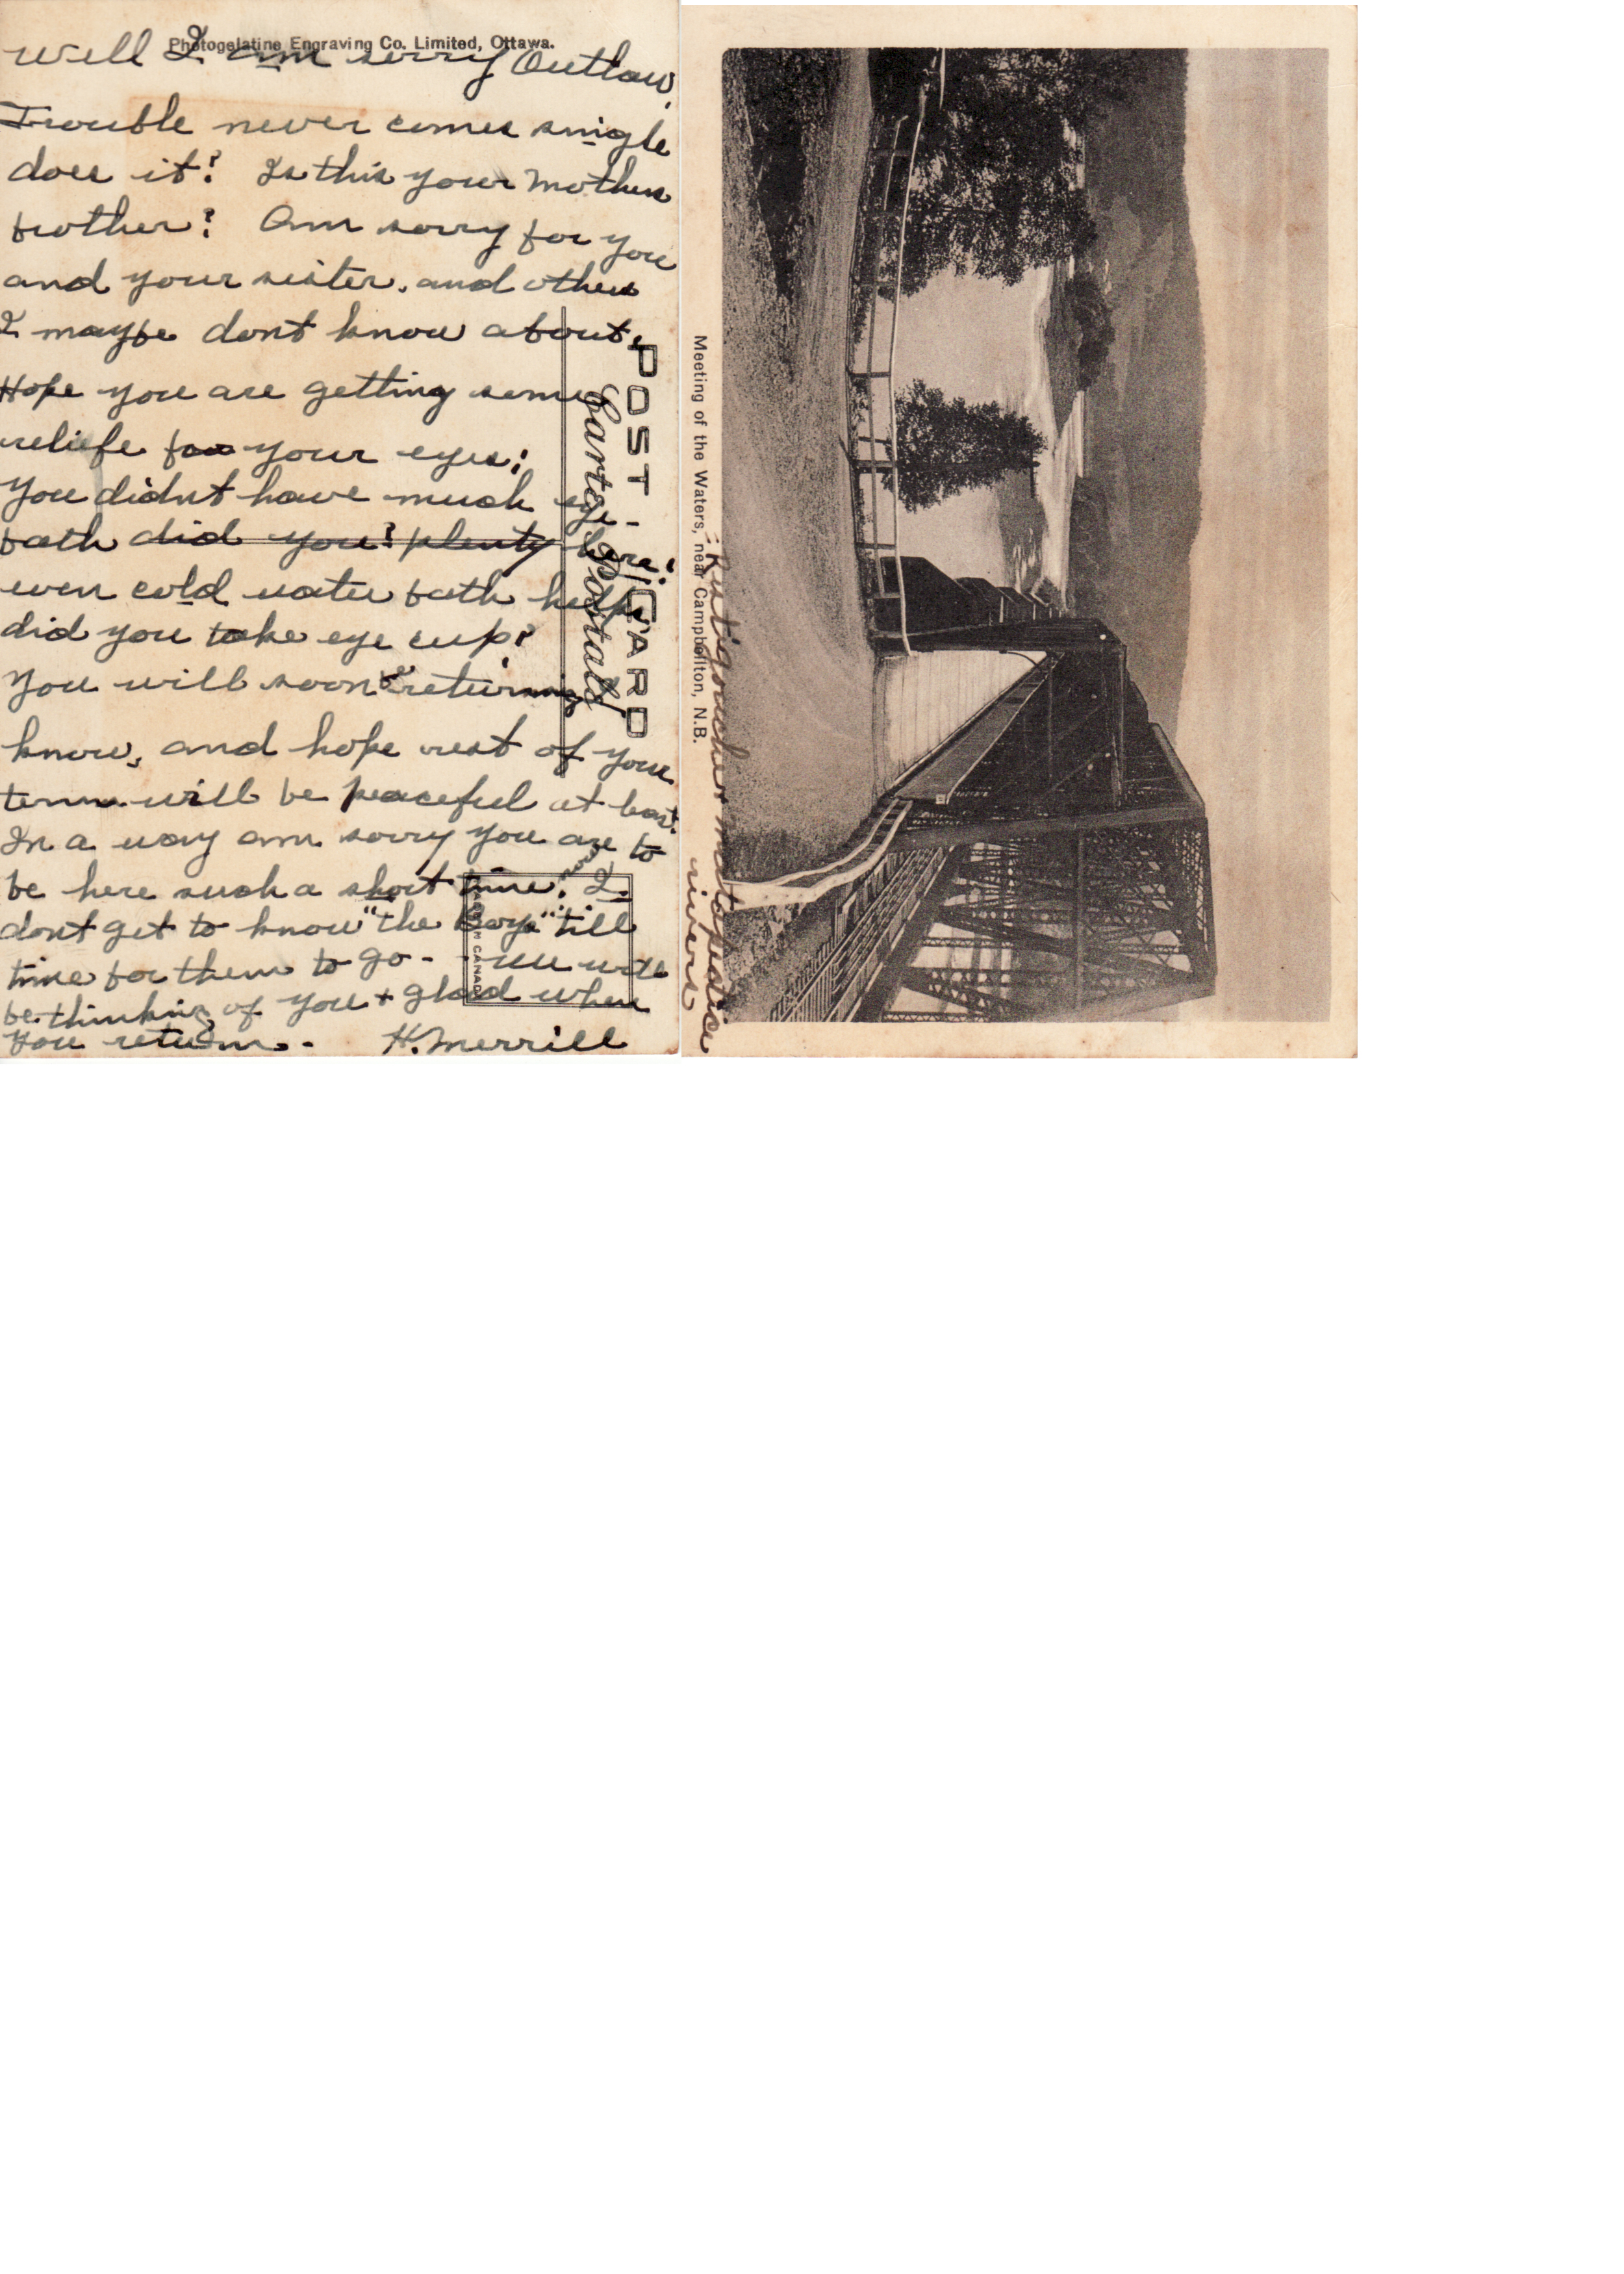 Photogelatine Engraving Co. Limited, Ottawa.
Well I am sorry Outlaw.
Trouble never comes single
does it? Is this your Mothers
brother? Am sorry for you
and your sister, and others
I maybe dont know about.
Hope you are getting some
reliefe for your eyes:
You didnt have much eye-
bath did you? plenty here!
even cold water bath helps
did you take eye cup?
You will soon be returning
know, and hope rest of your
term will be peaceful at least.
In a way am sorry you are to
be here such a short time, now I
dont get to know "the Boys" till
time for them to go - we will
be thinking of you + glad when
You return. - H. Merrill
POST CARD
Carte Postale
MADE IN CANADA
Meeting of the Waters, near Campbellton, N.B.
= Restigouche + Matapedia
rivers